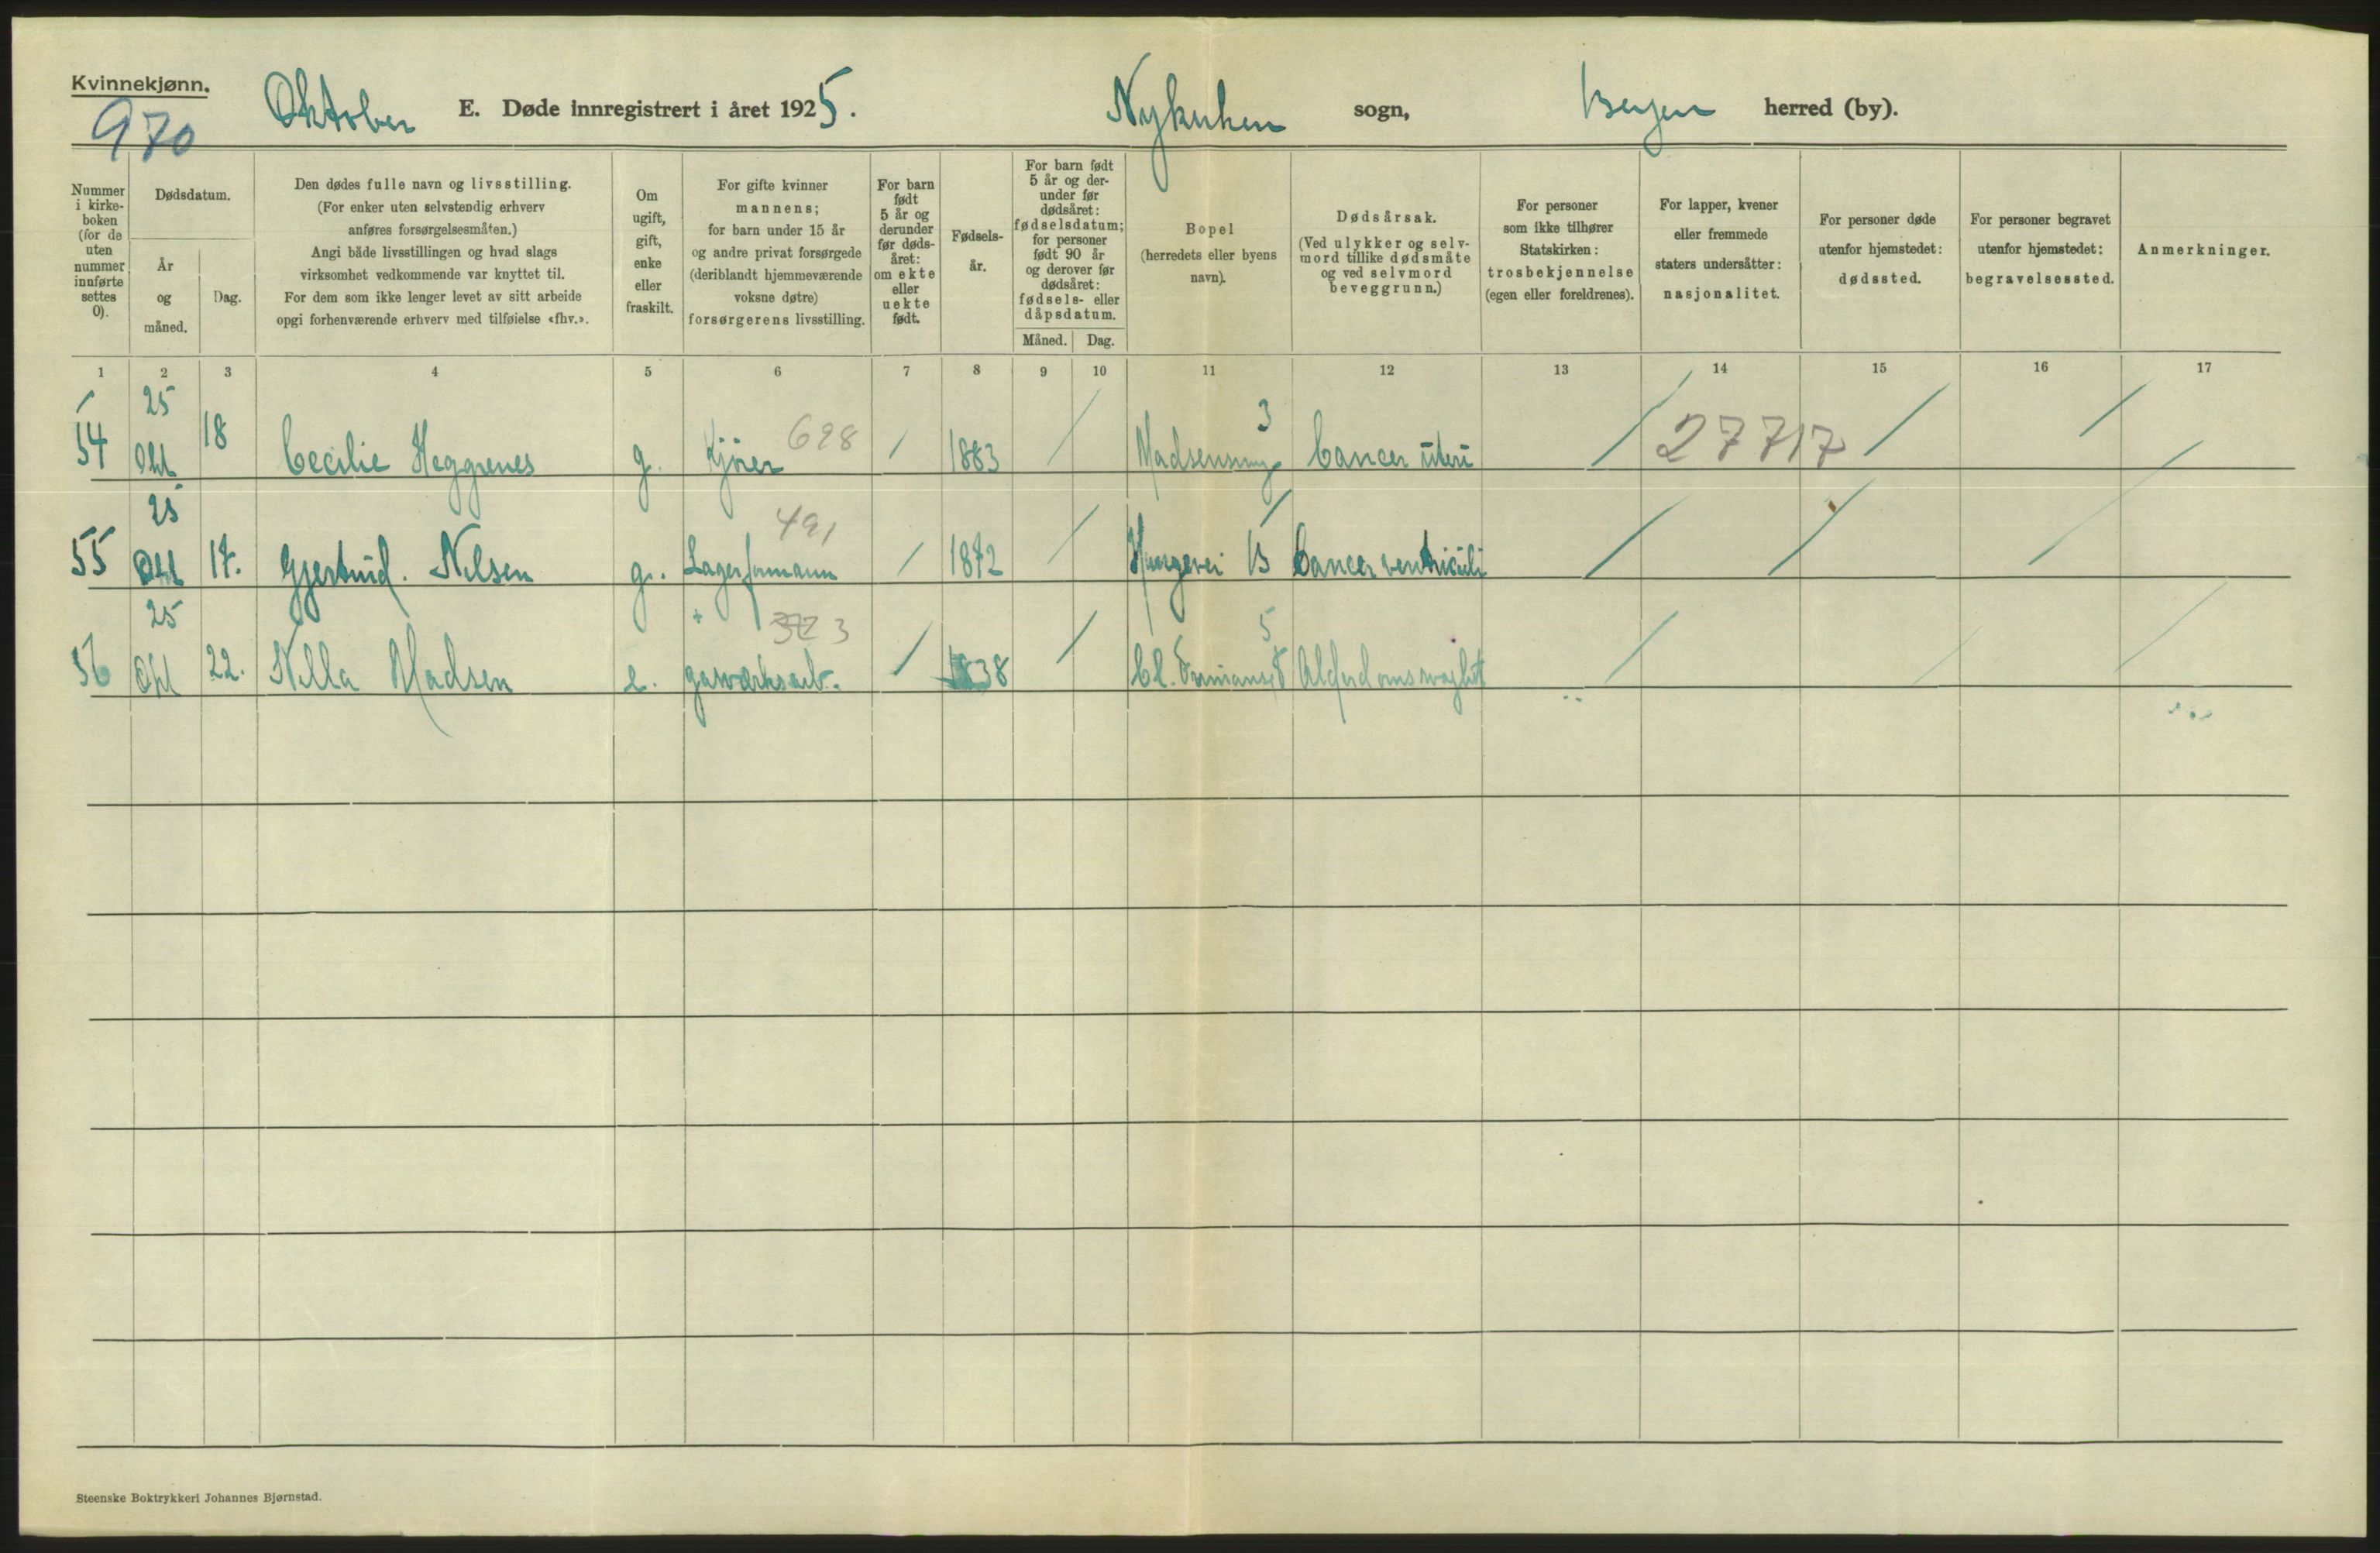 Kvinnekjønn.
970
Oktober E. Døde innregistrert i året 1925. Nykirken sogn, Bergen herred (by).
Nummer i kirke-boken (for de uten nummer innførte settes 0).
Dødsdatum.
År og måned.
Dag.
Den dødes fulle navn og livsstilling.
(For enker uten selvstendig erhverv
anføres forsørgelsesmåten.)
Angi både livsstillingen og hvad slags
virksomhet vedkommende var knyttet til.
For dem som ikke lenger levet av sitt arbeide
opgi forhenværende erhverv med tilføielse «fhv.».
Om
ugift,
gift,
enke
eller
fraskilt.
For gifte kvinner
mannens;
for barn under 15 år
og andre privat forsørgede
(deriblandt hjemmeværende
voksne døtre)
forsørgerens livsstilling.
For barn
født
5 år og
derunder
før døds-
året:
om ekte
eller
uekte
født.
Fødsels-
år.
For barn født
5 år og der-
under før
dødsåret:
fødselsdatum;
for personer
født 90 år
og derover før
dødsåret:
fødsels- eller
dåpsdatum.
Måned. Dag.
Bopel
(herredets eller byens
navn).
Dødsårsak.
(Ved ulykker og selv-
mord tillike dødsmåte
og ved selvmord
beveggrunn.)
For personer
som ikke tilhører
Statskirken:
trosbekjennelse
(egen eller foreldrenes).
For lapper, kvener
eller fremmede
staters undersåtter:
nasjonalitet.
For personer døde
utenfor hjemstedet:
dødssted.
For personer begravet
utenfor hjemstedet:
begravelsessted.
Anmerkninger.
1 2 3 4 5 6 7 8 9 10 11 12 13 14 15 16 17
54 25 Okt 18 Cecilie Heggrenes g. Kjører 628 / 1883 / 3 Cancer uteri / 27717 / / /
55 25 Okt 17. Gjertrud. Nilsen g. Lagerformann 491 / 1872 / Cancer ventriculi / / /
56 25 Okt 22. Nilla Madsen e. gasværksarb. / 1838 / 5 Alderdomssvaghet / / /
Steenske Boktrykkeri Johannes Bjørnstad.